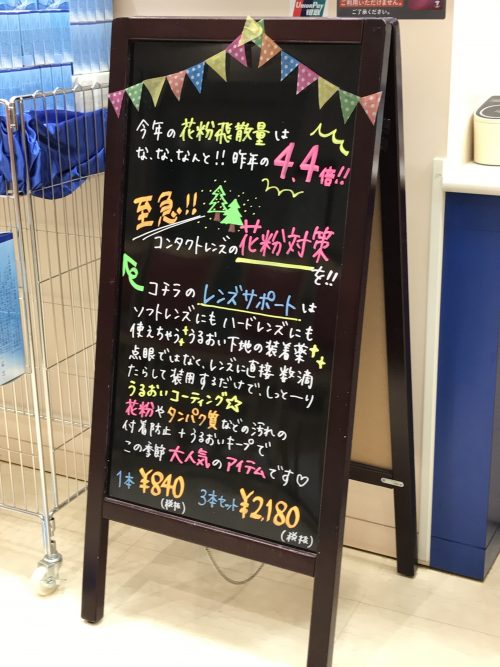 UnionPay
銀聯
ご利用いただけません。
ご了承ください。
今年の花粉飛散量は
な、な、なんと!! 昨年の4.4倍!!
至急!!
コンタクトレンズの花粉対策
を!!
コチラのレンズサポートは
ソフトレンズにもハードレンズにも
使えちゃう うるおい下地の装着薬
点眼ではなく、レンズに直接数滴
たらして装用するだけで、しっと〜り
うるおいコーティング☆
花粉やタンパク質などの汚れの
付着防止+うるおいキープで
この季節大人気のアイテムです♡
1本 ¥840 3本セット ¥2,180
(税抜) (税抜)